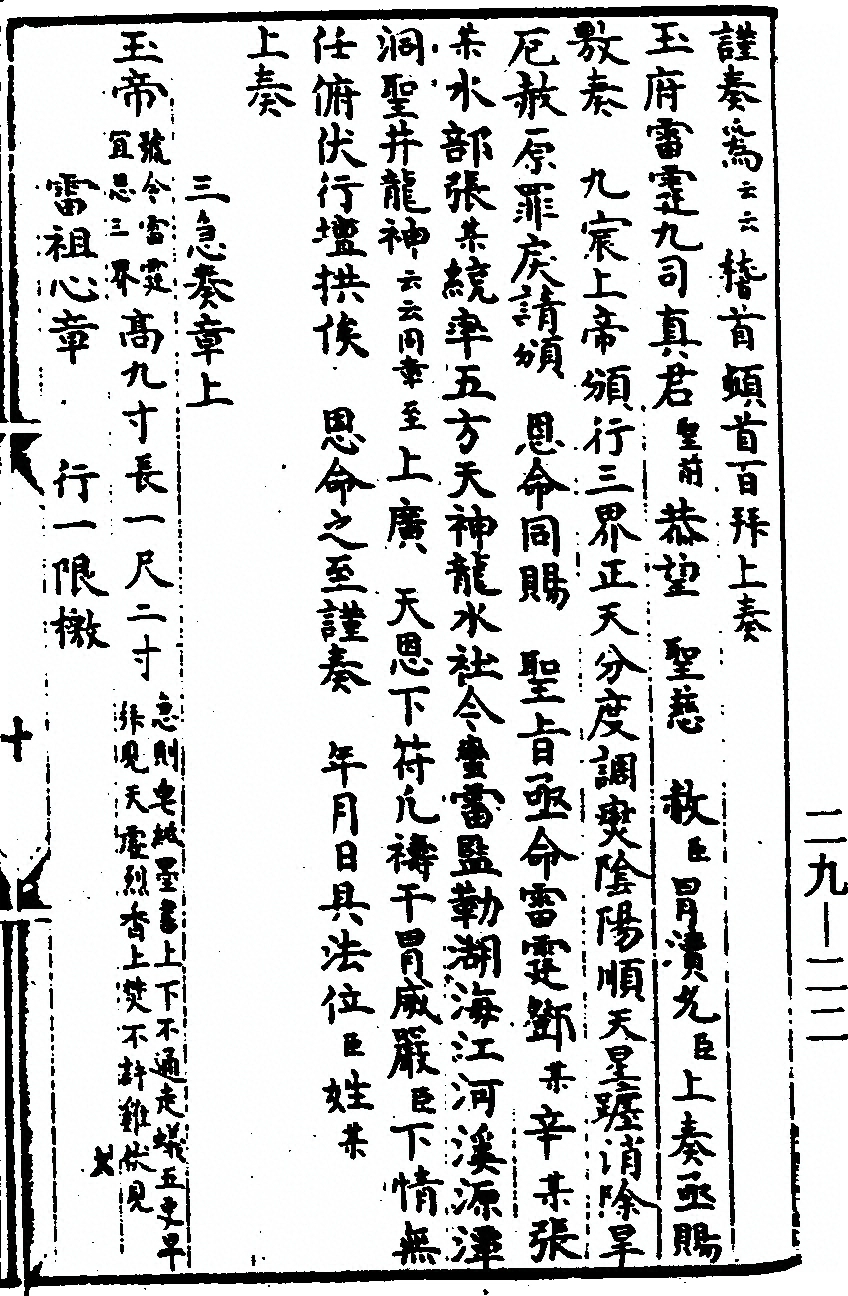 謹奏為云云稽首頓首百拜上奏
玉府雷霆九司真君聖前恭望　聖慈　赦臣冒瀆允臣上奏亟賜
敷奏　九宸上帝頒行三界正天分度調爕陰陽順天星躔消除旱
厄赦原罪戾請頒　恩命同賜　聖旨亟命雷霆鄧某辛某張
某水部張某統率五方天神龍水社令蠻雷監勒湖海江河溪源潭
洞聖井龍神云云同章至上廣　天恩下符凡禱干冒威嚴臣下情無
任俯伏行壇拱俟　恩命之至謹奏　年月日具法位臣姓某
上奏
三急奏章上
玉帝號令雷霆宜思三界高九寸長一尺二寸急則皂紙墨書上下不通走蟻五更早拜見天虔烈香上焚不許雞伏見
雷祖心章　行一限檄
十
二九—二二